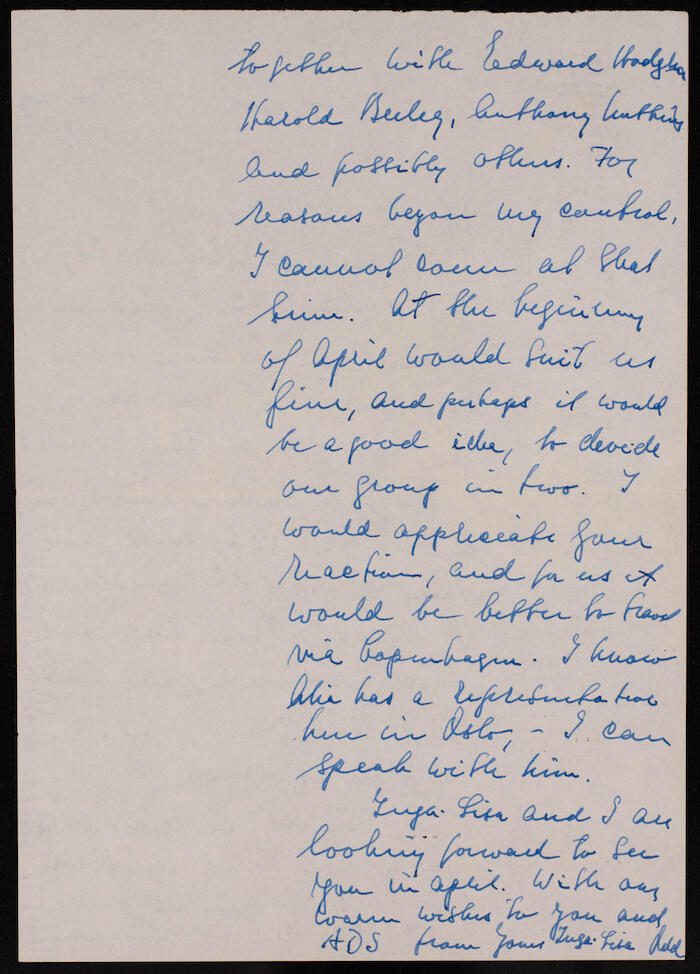 together with Edward Hodgkin
Harold Beeley, Anthony Nutting
and possibly others. For
reasons beyon my control,
I cannot come at that
time. At the beginning
of April would suit us
fine, and perhaps it would
be a good idea, to devide
our group in two. I
would appreciate your
reaction, and for us it
would be better to travel
via Copenhagen. I know
Alia has a representative
here in Oslo, – I can
speak with him.
Inga-Lisa and I are
looking forward to see
you in april. With our
warm wishes to you and
ADS from yours Inga-Lisa Odd